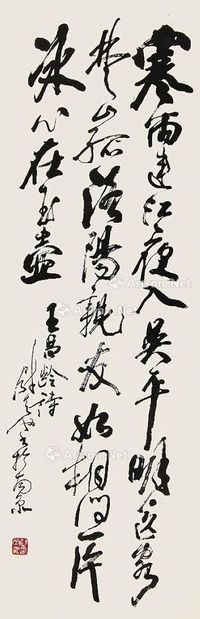 寒雨連江夜入吳平明送客
楚山孤洛陽親友如相問一片
冰心在玉壺
王昌齡詩
於南京